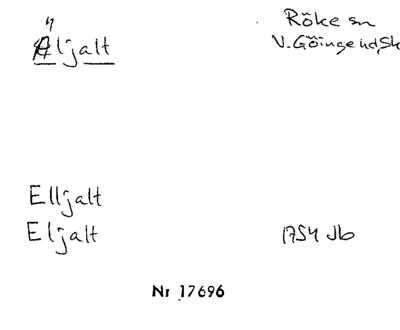 Äljalt
Röke sn
V. Göinge hd, Sk
Elljalt
Eljalt 1754 Jb
Nr 17696